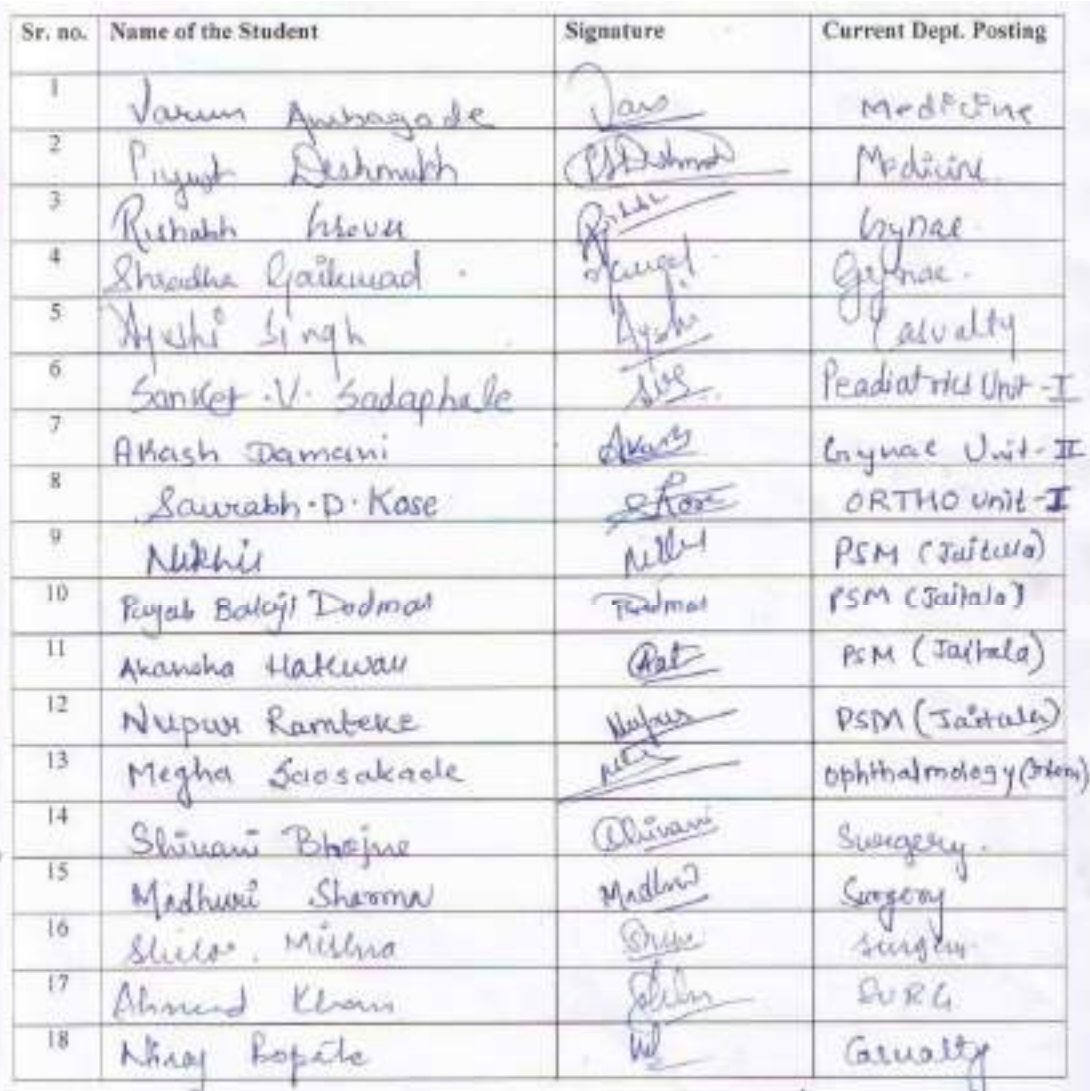 Sr. no. Name of the Student Signature Current Dept. Posting
1 Varun Ambagade Medicine
2 Piyush Deshmukh PSDeshmukh Medicine
3 Rishabh Grover Rishabh Gynae
4 Shradha Gaikwad Gynae
5 Ayushi Singh Ayushi Casualty
6 Sanket .V. Sadaphale Peadiatrics Unit-I
7 Akash Damani Akash Gynae Unit-II
8 Saurabh.D.Kose SKose ORTHO unit-I
9 Nikhil PSM (Jaitala)
10 Payal Balaji Dodmal PSM (Jaitala)
11 Akansha Hatewar PSM (Jaitala)
12 Nupur Ramteke Nupur PSM (Jaitala)
13 Megha Ophthalmology
14 Shivani Bhojne Shivani Surgery.
15 Madhuri Sharma Madhuri Surgery
16 Mishra Surgery
17 Ahmed Khan SURG
18 Niraj Casualty